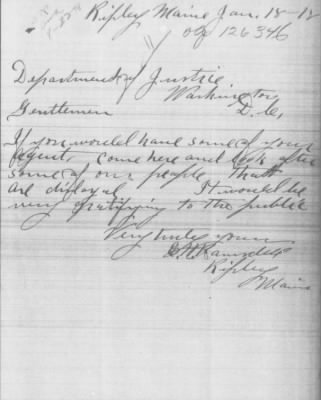 Ripley Maine Jan. 18-18
OG 126346
Department of Justice
Washington
D.C.
Gentlemen
If you would have some of your
Agents come here and look after
some of our people that
are disloyal It would be
very gratifying to the public
Very truly yours
Ripley
Maine